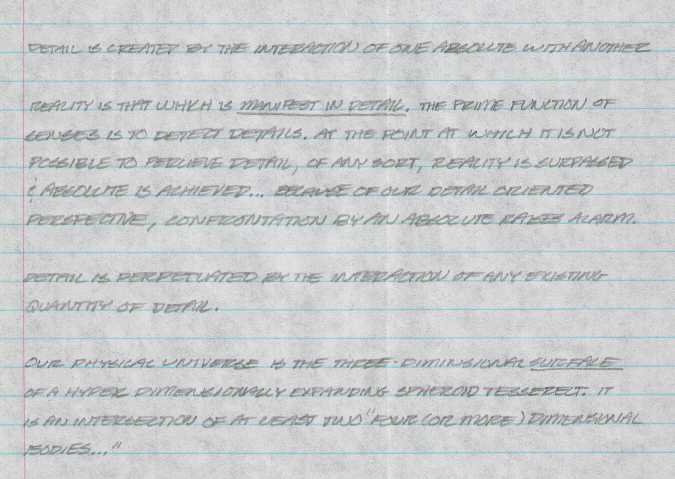 DETAIL IS CREATED BY THE INTERACTION OF ONE ABSOLUTE WITH ANOTHER
REALITY IS THAT WHICH IS MANIFEST IN DETAIL. THE PRIME FUNCTION OF
SENSES IS TO DETECT DETAILS. AT THE POINT AT WHICH IT IS NOT
POSSIBLE TO PERCIEVE DETAIL, OF ANY SORT, REALITY IS SURPASSED
& ABSOLUTE IS ACHIEVED... BECAUSE OF OUR DETAIL ORIENTED
PERSPECTIVE, CONFRONTATION BY AN ABSOLUTE RAISES ALARM.
DETAIL IS PERPETUATED BY THE INTERACTION OF ANY EXISTING
QUANTITY OF DETAIL.
OUR PHYSICAL UNIVERSE IS THE THREE-DIMINSIONAL SURFACE
OF A HYPER DIMENSIONALLY EXPANDING SPHEROID TESSERECT. IT
IS AN INTERSECTION OF AT LEAST TWO "FOUR (OR MORE) DIMENSIONAL
BODIES..."